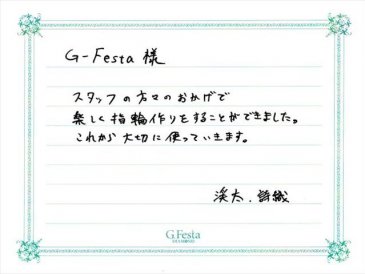 G-Festa 様
スタッフの方々のおかげで
楽しく指輪作りをすることができました。
これから大切に使っていきます。
渓太. 詩織
G.Festa